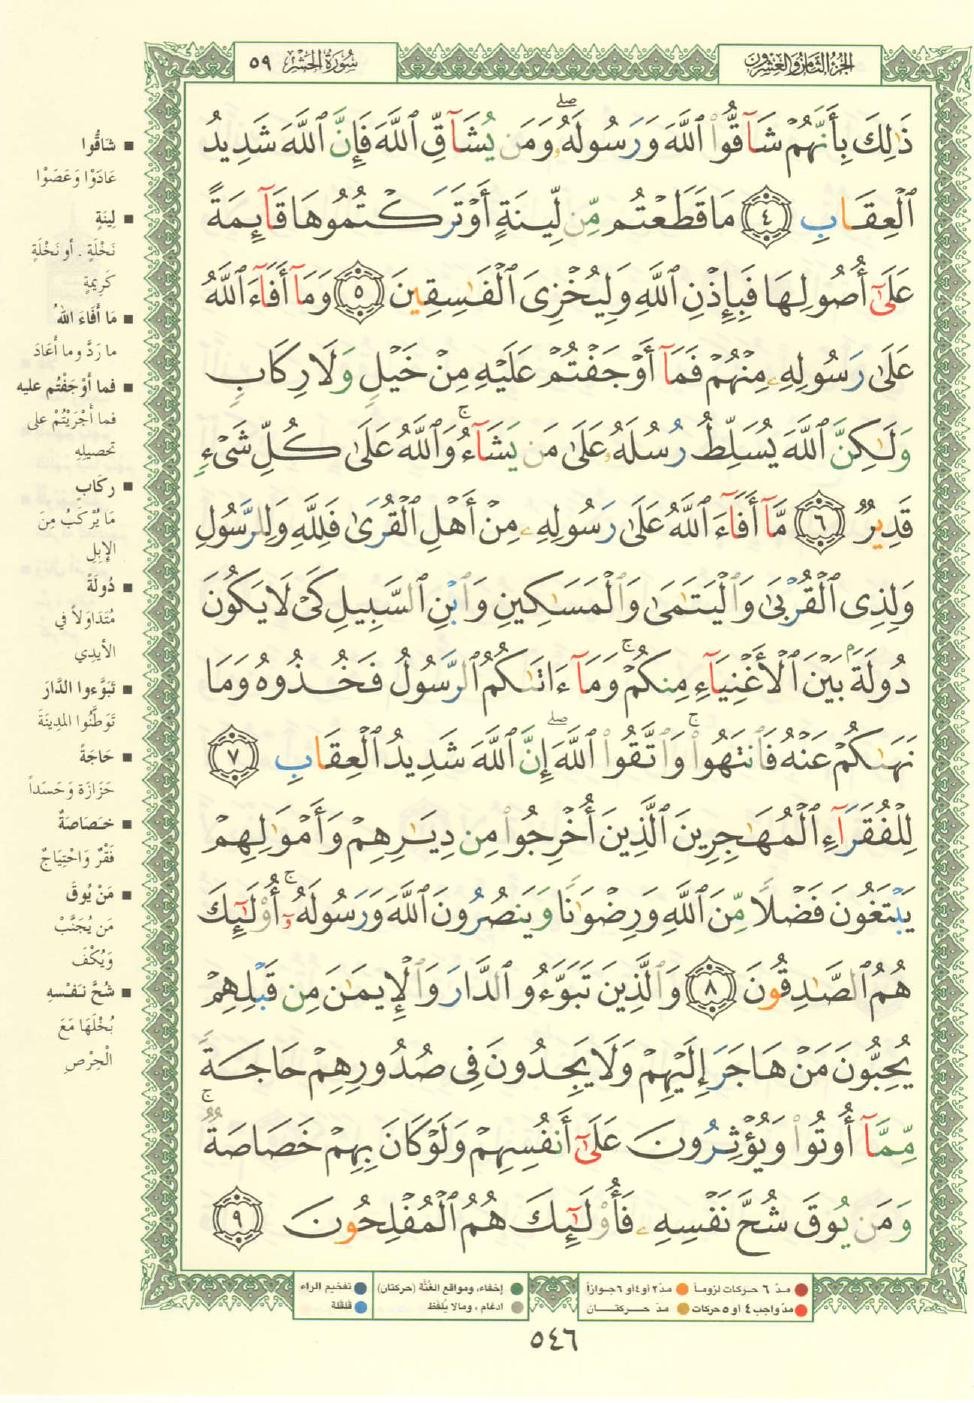 الجزء الثامن والعشرون
سورة الحشر ٥٩
ذَٰلِكَ بِأَنَّهُمْ شَآقُّوا۟ ٱللَّهَ وَرَسُولَهُۥ ۖ وَمَن يُشَآقِّ ٱللَّهَ فَإِنَّ ٱللَّهَ شَدِيدُ
ٱلْعِقَابِ ﴿٤﴾ مَا قَطَعْتُم مِّن لِّينَةٍ أَوْ تَرَكْتُمُوهَا قَآئِمَةً
عَلَىٰٓ أُصُولِهَا فَبِإِذْنِ ٱللَّهِ وَلِيُخْزِىَ ٱلْفَـٰسِقِينَ ﴿٥﴾ وَمَآ أَفَآءَ ٱللَّهُ
عَلَىٰ رَسُولِهِۦ مِنْهُمْ فَمَآ أَوْجَفْتُمْ عَلَيْهِ مِنْ خَيْلٍ وَلَا رِكَابٍ
وَلَـٰكِنَّ ٱللَّهَ يُسَلِّطُ رُسُلَهُۥ عَلَىٰ مَن يَشَآءُ ۚ وَٱللَّهُ عَلَىٰ كُلِّ شَىْءٍ
قَدِيرٌ ﴿٦﴾ مَّآ أَفَآءَ ٱللَّهُ عَلَىٰ رَسُولِهِۦ مِنْ أَهْلِ ٱلْقُرَىٰ فَلِلَّهِ وَلِلرَّسُولِ
وَلِذِى ٱلْقُرْبَىٰ وَٱلْيَتَـٰمَىٰ وَٱلْمَسَـٰكِينِ وَٱبْنِ ٱلسَّبِيلِ كَىْ لَا يَكُونَ
دُولَةًۢ بَيْنَ ٱلْأَغْنِيَآءِ مِنكُمْ ۚ وَمَآ ءَاتَىٰكُمُ ٱلرَّسُولُ فَخُذُوهُ وَمَا
نَهَىٰكُمْ عَنْهُ فَٱنتَهُوا۟ ۚ وَٱتَّقُوا۟ ٱللَّهَ ۖ إِنَّ ٱللَّهَ شَدِيدُ ٱلْعِقَابِ ﴿٧﴾
لِلْفُقَرَآءِ ٱلْمُهَـٰجِرِينَ ٱلَّذِينَ أُخْرِجُوا۟ مِن دِيَـٰرِهِمْ وَأَمْوَٰلِهِمْ
يَبْتَغُونَ فَضْلًا مِّنَ ٱللَّهِ وَرِضْوَٰنًا وَيَنصُرُونَ ٱللَّهَ وَرَسُولَهُۥٓ ۚ أُو۟لَـٰٓئِكَ
هُمُ ٱلصَّـٰدِقُونَ ﴿٨﴾ وَٱلَّذِينَ تَبَوَّءُو ٱلدَّارَ وَٱلْإِيمَـٰنَ مِن قَبْلِهِمْ
يُحِبُّونَ مَنْ هَاجَرَ إِلَيْهِمْ وَلَا يَجِدُونَ فِى صُدُورِهِمْ حَاجَةً
مِّمَّآ أُوتُوا۟ وَيُؤْثِرُونَ عَلَىٰٓ أَنفُسِهِمْ وَلَوْ كَانَ بِهِمْ خَصَاصَةٌ ۚ
وَمَن يُوقَ شُحَّ نَفْسِهِۦ فَأُو۟لَـٰٓئِكَ هُمُ ٱلْمُفْلِحُونَ ﴿٩﴾
شَاقُّوا
عَادَوْا وَعَصَوْا
لِينَةٍ
نَخْلَةٍ . أو نَخْلَةٍ
كَرِيمَةٍ
مَا أَفَاءَ اللهُ
ما رَدَّ وما أَعَادَ
فما أَوْجَفْتُم عليه
فما أَجْرَيْتُمْ على
تحصيلِهِ
رِكَابٍ
مَا يُرْكَبُ مِنَ
الإِبِلِ
دُولَةً
مُتَدَاوَلاً في
الأيدِي
تَبَوَّءوا الدَّارَ
تَوَطَّنُوا المدِينَةَ
حَاجَةً
حَزَازَةً وَحَسَداً
خَصَاصَةٌ
فَقْرٌ وَاحْتِيَاجٌ
مَنْ يُوقَ
مَن يُجَنَّبْ
وَيُكْفَ
شُحَّ نَفْسِهِ
بُخْلَهَا مَعَ
الْحِرْصِ
مدّ ٦ حركات لزوماً مدّ ٢ أو ٤ أو ٦ جوازاً
مدّ واجب ٤ أو ٥ حركات مدّ حركتان
إخفاء، ومواقع الغُنَّة (حركتان)
ادغام ، ومالا يُلفَظ
تفخيم الراء
قلقلة
٥٤٦